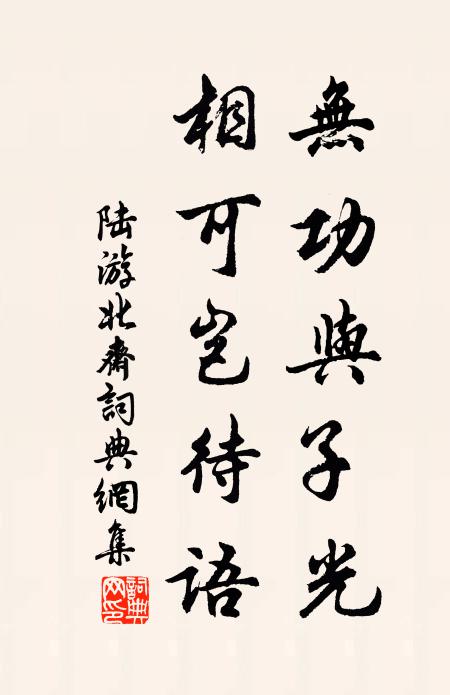 無功與子光
相可岂待語
陆游北齋詞典網集
詞典网印